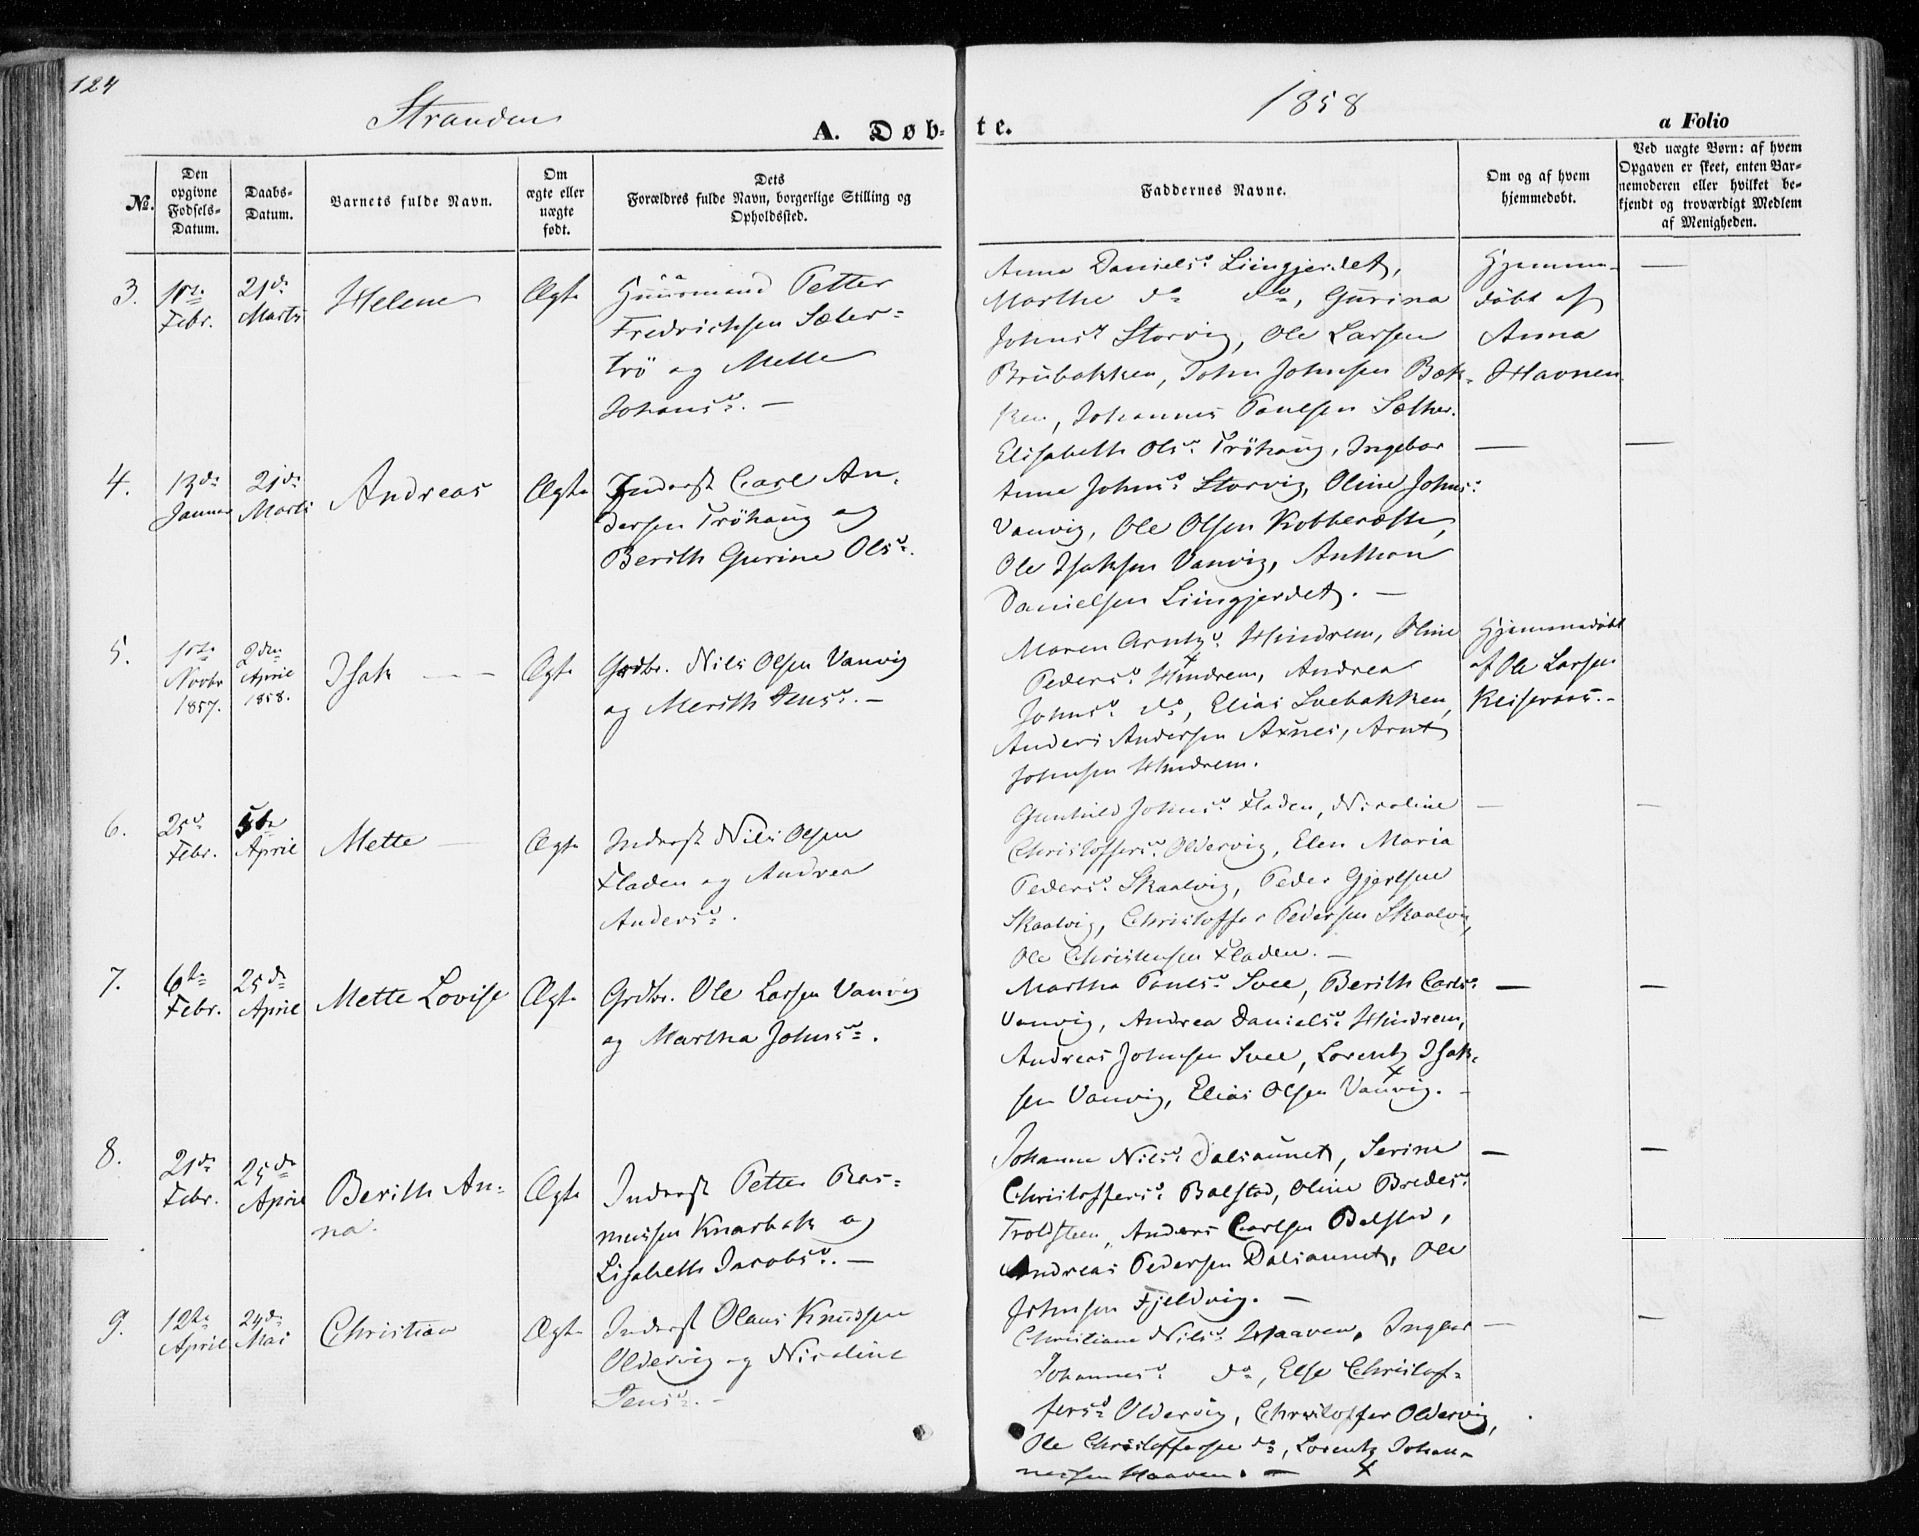 124
Stranden
1858
A. Døb-
te.
a Folio
No.
Den opgivne Fødsels-Datum.
Daabs-Datum.
Barnets fulde Navn.
Om ægte eller uægte født.
Dets Forældres fulde Navn, borgerlige Stilling og Opholdssted.
Faddernes Navne.
Om og af hvem hjemmedøbt.
Ved uægte Børn: af hvem Opgaven er skeet, enten Barnemoderen eller hvilket bekjendt og troværdigt Medlem af Menigheden.
3.
Febr.
21de
Marts
Helene
Ægte
Huusmand Petter
Fredrichsen Sæter-
trö og Mette
Johansd. —
Anna Danielsd. Liingjerdet,
Marthe do do, Gurina
Johnsd. Storvig, Ole Larsen
Brubakken, John Johnsen Bæk-
ken, Johannes Paulsen Sæther.
Hjemme-
døbt af
Anna
Havnen.
—
4.
13de
Januar
21de
Marts
Andreas
Ægte
Inderst Carl An-
dersen Tröhaug og
Berith Gurine Olsd.
Elisabeth Olsd. Tröhaug, Ingebor
Anna Johnsd. Storvig, Oline Johnsd.
Vanvig, Ole Olsen Kobberæsth,
Ole Isaksen Vanvig, Anthon
Danielsen Liingjerdet. —
—
—
5.
1ste
Novbr
1857.
2den
April
1858.
Isak — —
Ægte
Grdbr. Nils Olsen Vanvig
og Merith Jensd. —
Maren Arntzd. Hindrem, Oline
Pedersd. Hindrem, Andrea
Johnsd. do, Elias Svebakken,
Anders Andersen Axnes, Arnt
Johnsen Hindrem.
Hjemmedøbt
af Ole Larsen
Keiseraas. -
6.
25d
Febr.
5te
April
Mette —
Ægte
Inderst Nils Olsen
Fladen og Andrea
Andersd.
Gunhild Johnsd. Fladen, Nicoline
Christoffersd. Oldervig, Elen Maria
Pedersd. Skaalvig, Peder Gjertsen
Skaalvig, Christoffer Pedersen Skaalvig,
Ole Christensen Fladen. —
—
—
7.
6te
Febr.
25de
April
Mette Lovise
Ægte
Grdbr. Ole Larsen Vanvig
og Martha Johnsd.
Martha Paulsd. Svee, Berith Carlsd.
Vanvig, Andrea Danielsd. Hindrem,
Andreas Johnsen Svee, Lorentz Isak-
sen Vanvig, Elias Olsen Vanvig. -
—
—
8.
21de
Febr.
25de
April
Berith An-
na.
Ægte
Inderst Petter Ras-
mussen Knarbak og
Lisabeth Jacobsd. —
Johanna Nilsd. Dalsaunet, Serine
Christoffersd. Balstad, Oline Bredesd.
Troldsteen, Anders Carlsen Balstad,
Andreas Pedersen Dalsaunet, Ole
Johnsen Fjeldvig. —
—
—
9.
12te
April
24de
Mai
Christian
Ægte
Inderst Olaus Knudsen
Oldervig og Nicoline
Jensd. -
Christiane Nilsd. Haaven, Ingbor
Johannesd. do, Else Christof-
fersd. Oldervig, Christoffer Oldervig,
Ole Christoffersen do, Lorentz Johan-
nessen Haaven. —
—
—